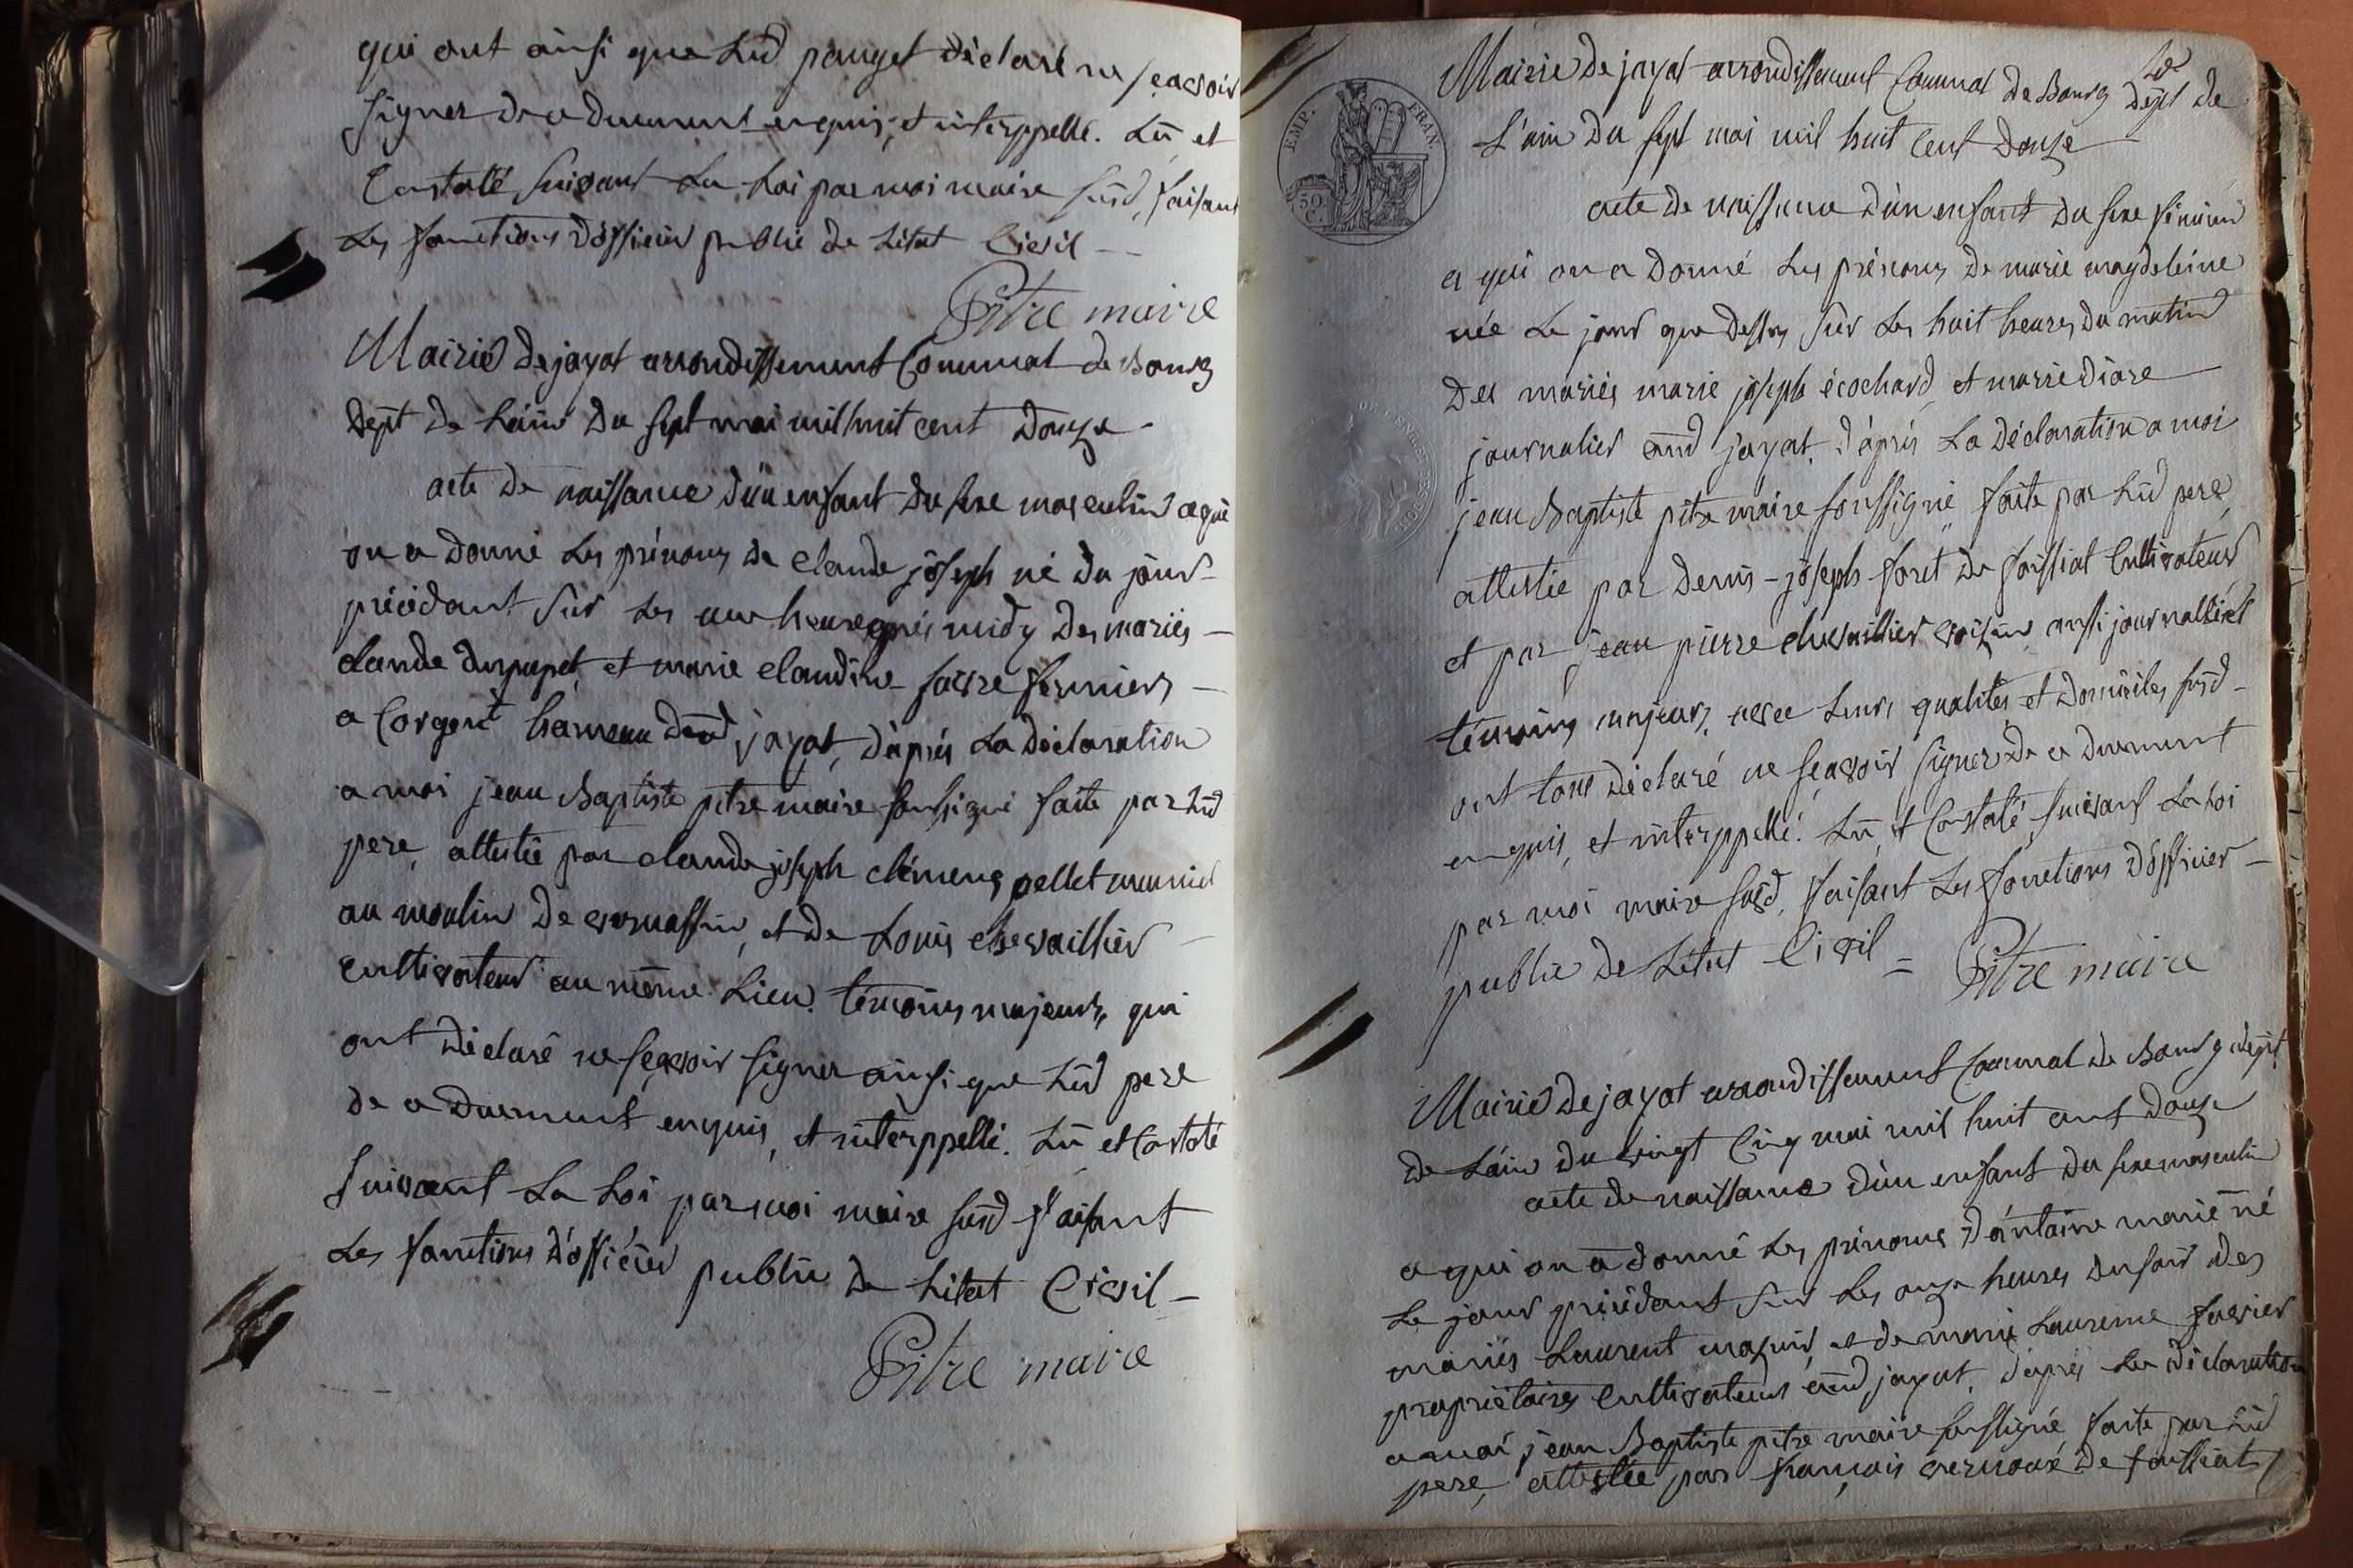 qui ont ainsi que led pauget déclaré ne sçavoir
signer de ce duement enquis, et interppellé. Lû et
Constaté suivant La Loi par moi maire susd, faisant
Les fonctions d'officier public de L'état Civil
Pitre maire
Mairie de jayat arrondissement Communal de Bourg
dépt de L'ain du sept mai mil huit cent douze
acte de naissance d'un enfant du sexe masculin a qui
on a donné Les prénoms de claude joseph né du jour
précédant sur Les une heure après midy Des mariés
claude dupupet et marie claudine favre fermiers
a Corgent hameau dud jayat, d'après La déclaration
a moi jean Baptiste pitre maire soussigné faite par Led
pere, attestée par claude joseph clément pellet meunier
au moulin de, et de Louis chevaillier
cultivateur au même Lieu. témoins majeurs, qui
ont déclaré ne sçavoir signer ainsi que Led pere
de ce duement enquis, et interppellé. Lû et Constaté
suivant La Loi par moi maire susd faisant
Les fonctions d'officier public de L'état Civil
Pitre maire
EMP. FRAN.
50 C.
Mairie de jayat arrondissement Communal de Bourg dépt de
L'ain du sept mai mil huit cent douze
acte de naissance d'un enfant du sexe féminin
a qui on a donné Les prénoms de marie magdeleine
née Le jour que dessus sur Les huit heures du matin
Des mariés marie joseph écochard et marie diore
journalier aud jayat, d'après La déclaration a moi
jean Baptiste pitre maire soussigné faite par Led pere
attestée par denis-joseph foret de foissiat Cultivateur
et par jean pierre chevaillier voisin aussi journallier
témoins majeurs, avec Leurs qualités et domiciles susd
ont tous déclaré ne sçavoir signer de ce duement
enquis, et interppellé. Lû, et Constaté suivant La Loi
par moi maire susd, faisant Les fonctions d'officier
public de L'état Civil = Pitre maire
Mairie de jayat arrondissement Communal de Bourg dépt
de L'ain du vingt Cinq mai mil huit cent douze
acte de naissance d'un enfant du sexe masculin
a qui on a donné Les prénoms d'antoine marie né
Le jour précédant sur Les onze heures du soir des
mariés Laurent mazuir et de marie Laurence favier
propriétaires Cultivateurs aud jayat, d'après La déclaration
a moi jean Baptiste pitre maire soussigné faite par Led
pere, attestée par françois vernoux de foissiat